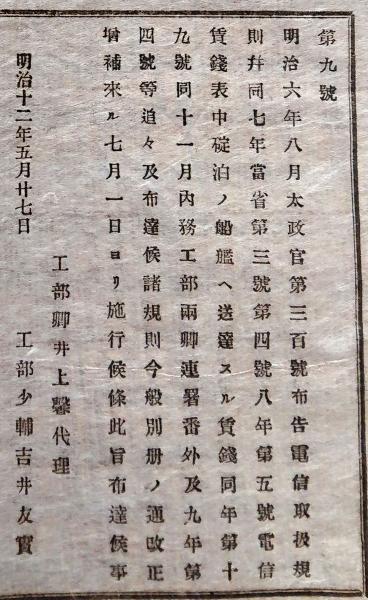 第九號
明治六年八月太政官第三百號布告電信取扱規
則幷同七年當省第三號第四號八年第五號電信
賃錢表中碇泊ノ船艦ヘ送達スル賃錢同年第十
九號同十一月內務工部兩卿連署番外及九年第
四號等追々及布達候諸規則今般別册ノ通改正
增補來ル七月一日ヨリ施行候條此旨布達候事
明治十二年五月廿七日
工部卿井上馨代理
工部少輔吉井友實